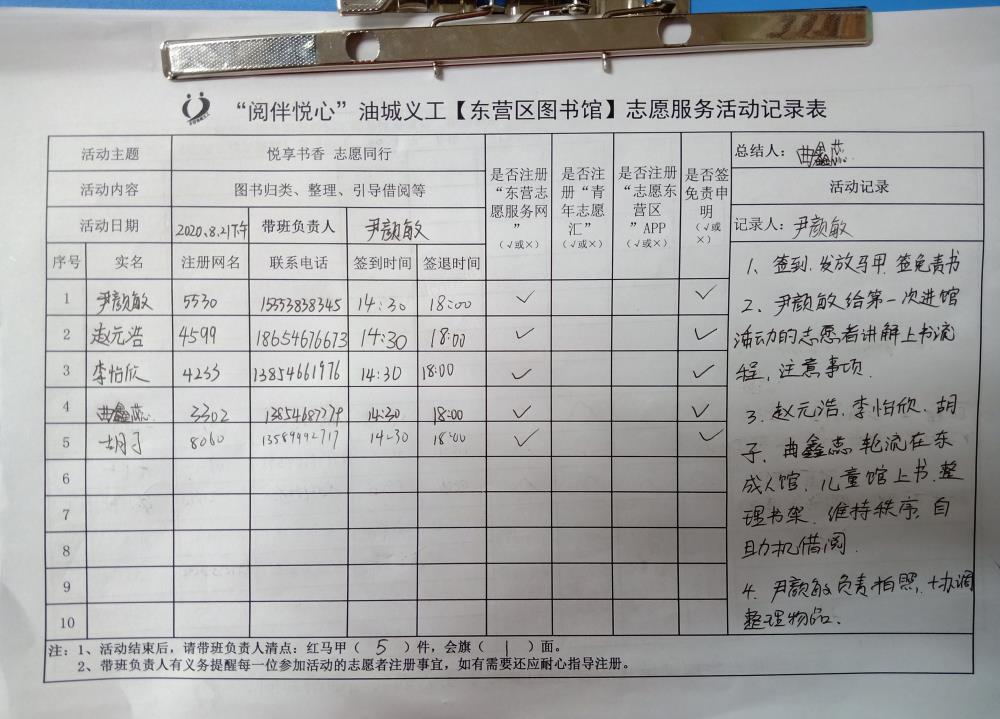 “阅伴悦心”油城义工【东营区图书馆】志愿服务活动记录表
活动主题 悦享书香 志愿同行
活动内容 图书归类、整理、引导借阅等
活动日期 2020.8.21下午 带班负责人 尹颜敏
是否注册“东营志愿服务网”（√或×）
是否注册“青年志愿汇”（√或×）
是否注册“志愿东营区”APP（√或×）
是否签免责申明（√或×）
总结人：曲鑫蕊
活动记录
记录人：尹颜敏
序号 实名 注册网名 联系电话 签到时间 签退时间
1 尹颜敏 5530 15353838345 14:30 18:00 ✓ ✓
2 赵元浩 4599 18654676673 14:30 18:00 ✓ ✓
3 李怡欣 4253 13854661976 14:30 18:00 ✓ ✓
4 曲鑫蕊 3302 13854687779 14:30 18:00 ✓ ✓
5 胡子 8060 13589992717 14:30 18:00 ✓ ✓
6
7
8
9
10
1、签到.发放马甲.签免责书
2、尹颜敏给第一次进馆
活动的志愿者讲解上书流
程，注意事项.
3、赵元浩、李怡欣、胡
子、曲鑫蕊轮流在东
成人馆、儿童馆上书.整
理书架.维持秩序.自
助机借阅.
4、尹颜敏负责拍照.协调
整理物品.
注：1、活动结束后，请带班负责人清点：红马甲（ 5 ）件，会旗（ 1 ）面。
2、带班负责人有义务提醒每一位参加活动的志愿者注册事宜，如有需要还应耐心指导注册。